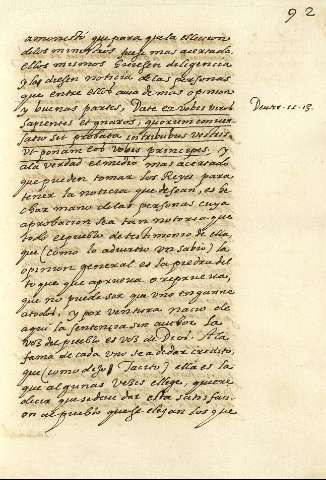 92
amonestó que para que la eleccion
de los ministros fuese mas acertada
ellos mismos hiciesen diligencia
y les diesen noticia de las personas
que entre ellos auia de mas opinion
y buenas partes, Date ex vobis viros
Deute. 1. 13.
sapientes et gnaros, quorum conver
satio sit probata in tribubus vestris
ut ponam eos vobis principes. y
a la verdad el medio mas acertado
que pueden tomar los Reyes para
tener la noticia que desean, es e
char mano de las personas cuya
aprobacion sea tan notoria que
todo el pueblo de testimonio de ella,
que (como lo aduirtio un sabio) la
opinion general es la piedra del
toque que aprueua o reprueua,
que no puede ser que uno engañe
a todos, y por ventura nacio de
aqui la sentencia sin autor la
voz del pueblo es voz de Dios. A la
fama de cada uno se a de dar credito,
que (como dijo Tacito) ella es la
que algunas veces elige, quiere
decir que se deue dar esta satisfac
on al pueblo que se elejan los que